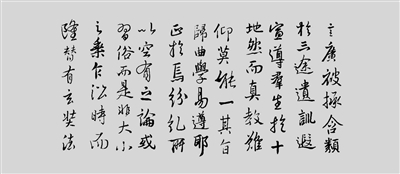 言廣被拯含類
於三途遺訓遐
宣導羣生於十
地然而真教難
仰莫能一其旨
歸曲學易遵耶
正於焉紛糺所
以空有之論或
習俗而是非大小
之乘乍沿時而
隆替有玄奘法